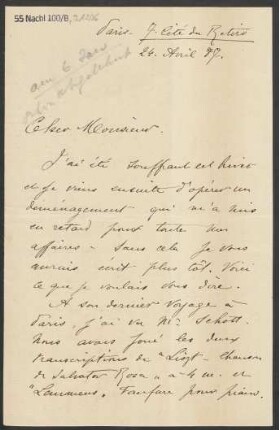 55 Nachl 100/B,
Paris. 7 Cité du Retiro
26 Avril 97.
am 6 Juni
Cher Monsieur.
J'ai été souffant cet hiver
et je viens ensuite d'opérer un
déménagement qui m'a mis
en retard pour toutes mes
affaires - Sans cela je vous
aurais écrit plus tôt. Voici
ce que je voulais vous dire.
A son dernier voyage à
Paris j'ai vu Mr Schott.
Nous avons joué les deux
transcriptions de "Liszt - Chanson
de Salvator Rosa" à 4 m. et
"Lemmens", Fanfare pour piano.